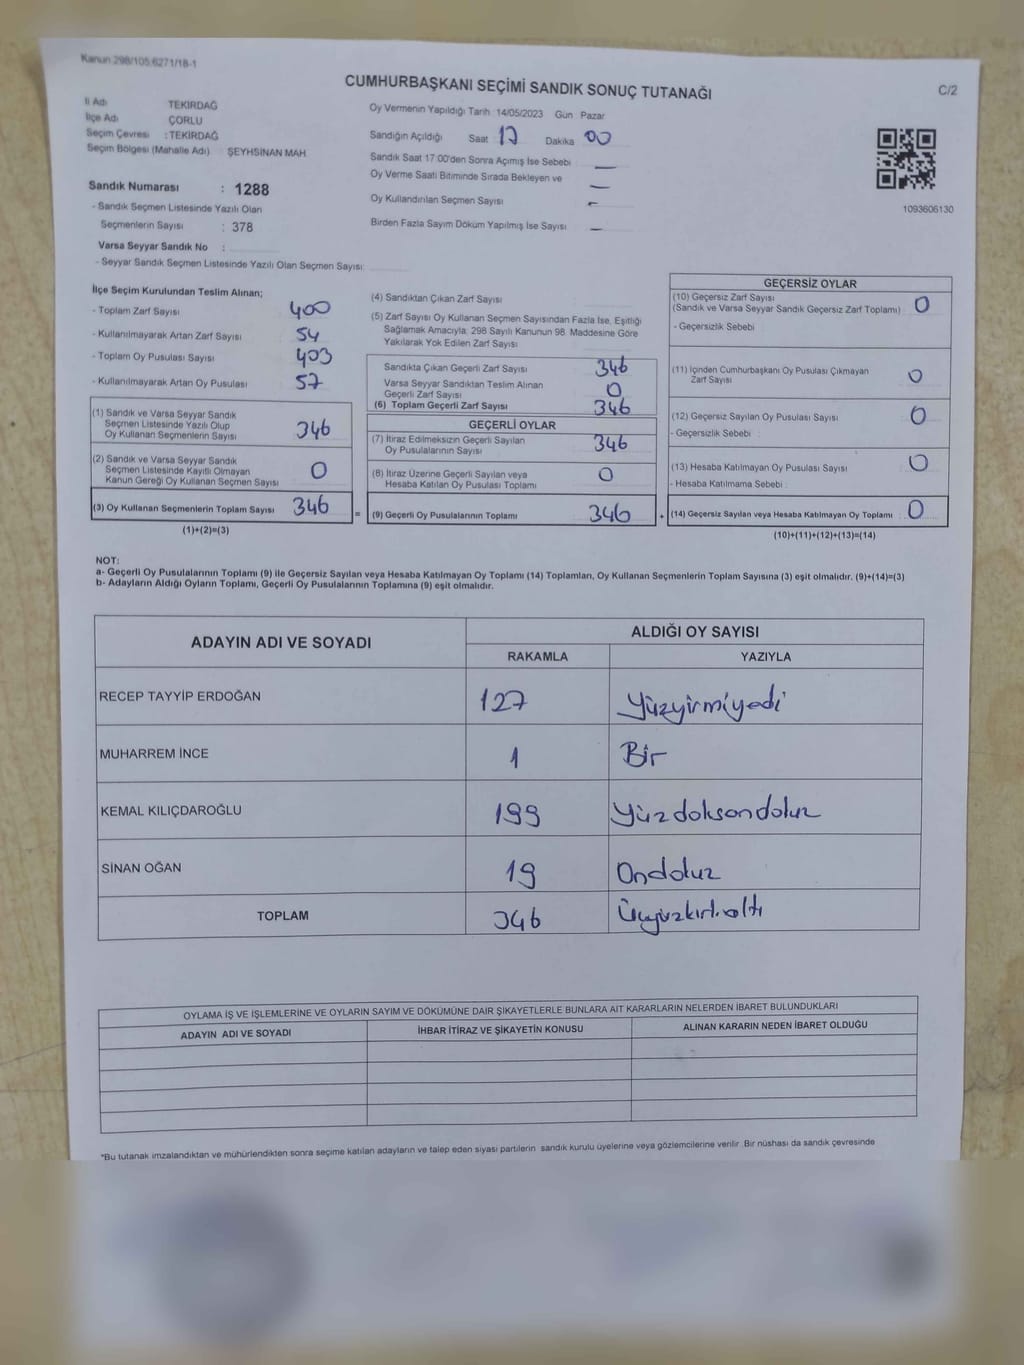 Kanun 298/105,6271/18-1
CUMHURBAŞKANI SEÇİMİ SANDIK SONUÇ TUTANAĞI
C/2
İl Adı TEKİRDAĞ
İlçe Adı ÇORLU
Seçim Çevresi : TEKİRDAĞ
Seçim Bölgesi (Mahalle Adı) ŞEYHSİNAN MAH.
Sandık Numarası : 1288
- Sandık Seçmen Listesinde Yazılı Olan
Seçmenlerin Sayısı : 378
Varsa Seyyar Sandık No :
- Seyyar Sandık Seçmen Listesinde Yazılı Olan Seçmen Sayısı:
Oy Vermenin Yapıldığı Tarih 14/05/2023 Gün Pazar
Sandığın Açıldığı Saat 17 Dakika 00
Sandık Saat 17:00'den Sonra Açımış İse Sebebi —
Oy Verme Saati Bitiminde Sırada Bekleyen ve —
Oy Kullandırılan Seçmen Sayısı -
Birden Fazla Sayım Döküm Yapılmış İse Sayısı —
1093606130
İlçe Seçim Kurulundan Teslim Alınan;
- Toplam Zarf Sayısı 400
- Kullanılmayarak Artan Zarf Sayısı 54
- Toplam Oy Pusulası Sayısı 403
- Kullanılmayarak Artan Oy Pusulası 57
(1) Sandık ve Varsa Seyyar Sandık
Seçmen Listesinde Yazılı Olup
Oy Kullanan Seçmenlerin Sayısı 346
(2) Sandık ve Varsa Seyyar Sandık
Seçmen Listesinde Kayıtlı Olmayan
Kanun Gereği Oy Kullanan Seçmen Sayısı 0
(3) Oy Kullanan Seçmenlerin Toplam Sayısı 346
(1)+(2)=(3)
(4) Sandıktan Çıkan Zarf Sayısı
(5) Zarf Sayısı Oy Kullanan Seçmen Sayısından Fazla İse, Eşitliği
Sağlamak Amacıyla, 298 Sayılı Kanunun 98. Maddesine Göre
Yakılarak Yok Edilen Zarf Sayısı
Sandıkta Çıkan Geçerli Zarf Sayısı 346
Varsa Seyyar Sandıktan Teslim Alınan
Geçerli Zarf Sayısı 0
(6) Toplam Geçerli Zarf Sayısı 346
GEÇERLİ OYLAR
(7) İtiraz Edilmeksizin Geçerli Sayılan
Oy Pusulalarının Sayısı 346
(8) İtiraz Üzerine Geçerli Sayılan veya
Hesaba Katılan Oy Pusulası Toplamı 0
= (9) Geçerli Oy Pusulalarının Toplamı 346
GEÇERSİZ OYLAR
(10) Geçersiz Zarf Sayısı
(Sandık ve Varsa Seyyar Sandık Geçersiz Zarf Toplamı) 0
- Geçersizlik Sebebi :
(11) İçinden Cumhurbaşkanı Oy Pusulası Çıkmayan
Zarf Sayısı 0
(12) Geçersiz Sayılan Oy Pusulası Sayısı 0
- Geçersizlik Sebebi :
(13) Hesaba Katılmayan Oy Pusulası Sayısı 0
- Hesaba Katılmama Sebebi :
+ (14) Geçersiz Sayılan veya Hesaba Katılmayan Oy Toplamı 0
(10)+(11)+(12)+(13)=(14)
NOT:
a- Geçerli Oy Pusulalarının Toplamı (9) ile Geçersiz Sayılan veya Hesaba Katılmayan Oy Toplamı (14) Toplamları, Oy Kullanan Seçmenlerin Toplam Sayısına (3) eşit olmalıdır. (9)+(14)=(3)
b- Adayların Aldığı Oyların Toplamı, Geçerli Oy Pusulalarının Toplamına (9) eşit olmalıdır.
ADAYIN ADI VE SOYADI ALDIĞI OY SAYISI
RAKAMLA YAZIYLA
RECEP TAYYİP ERDOĞAN 127 Yüzyirmiyedi
MUHARREM İNCE 1 Bir
KEMAL KILIÇDAROĞLU 199 Yüzdoksandokuz
SİNAN OĞAN 19 Ondokuz
TOPLAM 346 Üçyüzkırkaltı
OYLAMA İŞ VE İŞLEMLERİNE VE OYLARIN SAYIM VE DÖKÜMÜNE DAİR ŞİKAYETLERLE BUNLARA AİT KARARLARIN NELERDEN İBARET BULUNDUKLARI
ADAYIN ADI VE SOYADI İHBAR İTİRAZ VE ŞİKAYETİN KONUSU ALINAN KARARIN NEDEN İBARET OLDUĞU
*Bu tutanak imzalandıktan ve mühürlendikten sonra seçime katılan adayların ve talep eden siyasi partilerin sandık kurulu üyelerine veya gözlemcilerine verilir. Bir nüshası da sandık çevresinde